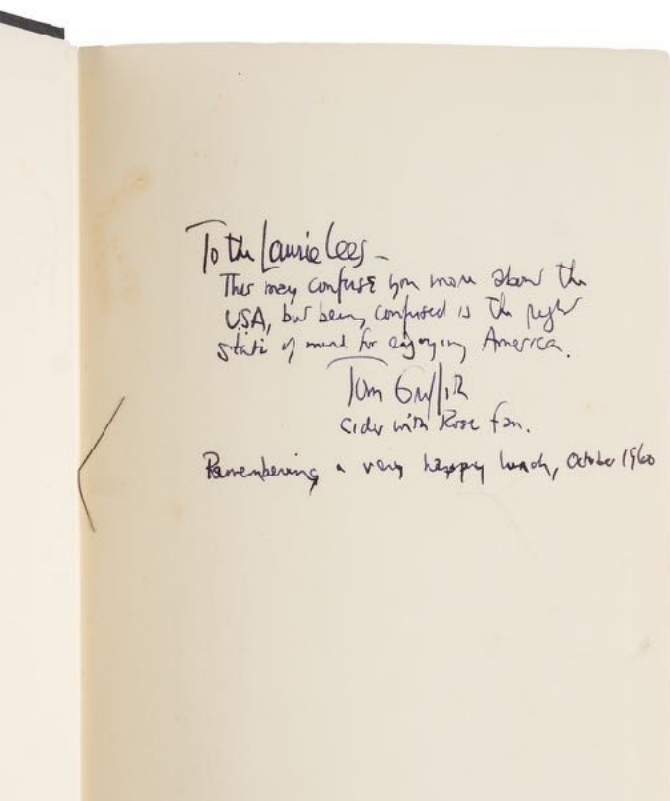 To the Laurie Lees –
This may confuse you more about the
USA, but being confused is the right
state of mind for enjoying America.
Tom Griffith
Cider with Rosie fan.
Remembering a very happy lunch, October 1960